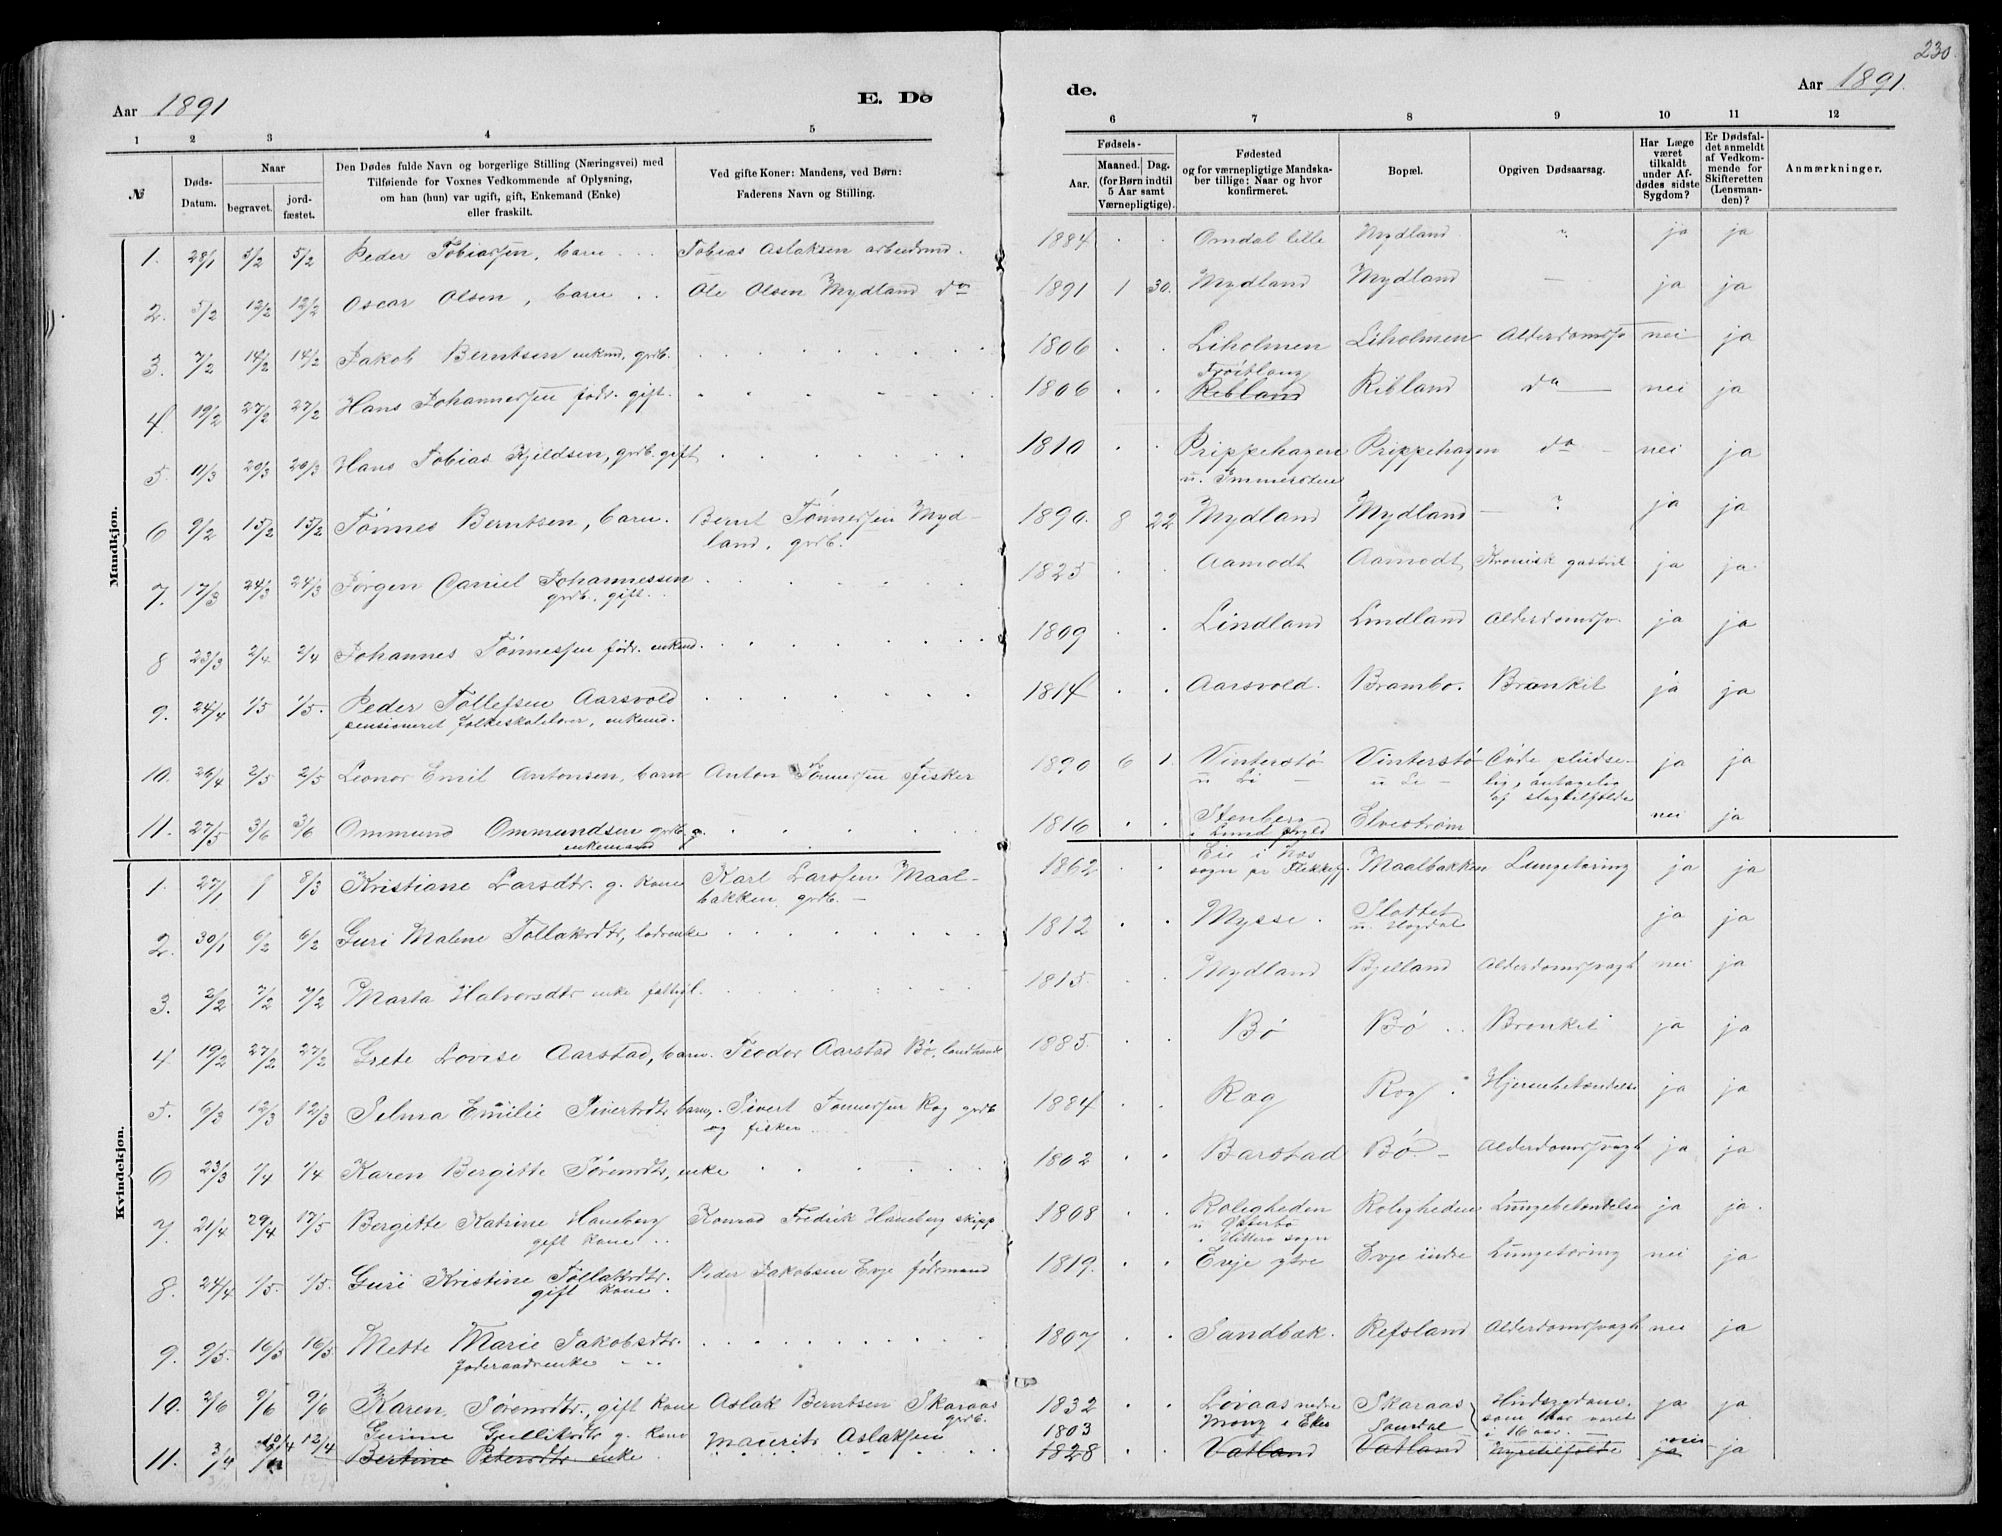 230.
Aar 1891
E. Dø
de.
Aar 1891.
1 2 3 4 5 6 7 8 9 10 11 12
№
Døds-Datum.
Naar
begravet.
jordfæstet.
Den Dødes fulde Navn og borgerlige Stilling (Næringsvei) med
Tilføiende for Voxnes Vedkommende af Oplysning,
om han (hun) var ugift, gift, Enkemand (Enke)
eller fraskilt.
Ved gifte Koner: Mandens, ved Børn:
Faderens Navn og Stilling.
Fødsels-
Aar.
Maaned. Dag.
(for Børn indtil
5 Aar samt
Værnepligtige).
Fødested
og for værnepligtige Mandska-
ber tillige: Naar og hvor
konfirmeret.
Bopæl.
Opgiven Dødsaarsag.
Har Læge
været
tilkaldt
under Af-
dødes sidste
Sygdom?
Er Dødsfal-
det anmeldt
af Vedkom-
mende for
Skifteretten
(Lensman-
den)?
Anmærkninger.
Mandkjøn.
1. 28/1 5/2 5/2 Peder Tobiassen, barn Tobias Aslaksen arbeidsmd. 1884 Omdal lille Mydland ? ja ja
2. 5/2 12/2 12/2 Oscar Olsen, barn Ole Olsen Mydland do 1891 1 30. Mydland Mydland — ja ja
3. 7/2 14/2 14/2 Jakob Berntsen enkmd. grdb. 1806 Liholmen Liholmen Alderdomssv nei ja
4. 19/2 27/2 27/2 Hans Johannessen fødr. gift. 1806 Ribland Ribland do nei ja
5. 11/3 20/3 20/3 Hans Tobias Kjeldsen, grdb. gift 1810 Prippehagen Prippehagen do nei ja
6 9/2 15/2 15/2 Tønnes Berntsen, barn. Bernt Tønnessen Myd-
land, grdb. 1890. 8 22 Mydland Mydland ? ja ja
7. 17/3 24/3 24/3 Jørgen Daniel Johannessen
grdb. gift. 1825 Aamodt Aamodt Kronisk gastrit ja ja
8 23/3 2/4 2/4 Johannes Tønnessen fødr. enkmd. 1809 Lindland Lindland Alderdomssv. ja ja
9. 24/4 1/5 1/5. Peder Tollefsen Aarsvold
pensioneret folkeskolelærer, enkemd. 1814 Aarsvold. Brambo. Bronkit ja ja
10. 26/4 2/5 2/5 Leonor Emil Antonsen, barn Anton Tønnessen Fisker 1890 6 1 Vinterstø Vinterstø Døde pludse-
u Li u Li lig, antagelig
af slagtilfælde ja ja
11. 27/5 3/6 3/6 Ommund Ommundsen grdb. 1816 Stenberg
i Lund Elvestrøm nei ja
enkemand
Kvindekjøn.
1. 27/1 8/3 Kristiane Larsdtr. g. kone Karl Larssen Maal-
bakken, grdb. 1862 Eie i Næs
sogn pr Flekkefj. Maalbakken Lungetæring ja ja
2. 30/1 6/2 6/2 Guri Malene Tollaksdtr, 1812 Mysse. Slottet
u. Hogdal ja ja
3. 2/2 7/2 7/2 Marta Halvorsdtr enke 1815. Mydland Bjelland Alderdomssvagh nei ja
4 19/2 27/2 27/2 Grete Lovise Aarstad, barn. Teodor Aarstad Bø, landhandl 1885. Bø Bø Bronkit ja ja
5. 6/3 12/3 12/3 Selma Emilie Sivertsdtr barn, Sivert Tønnessen Rog grdb
og fisker 1884 Rog Rog Hjernebetændelse ja ja
6 23/3 1/4 1/4 Karen Bergitte Sørensdtr, enke 1802 Barstad Bø Alderdomssvagh ja ja
7. 21/4 29/4 17/5 Bergitte Katrine Haneberg
gift kone Konrad Fredrik Haneberg skipp 1808 Roligheden
u Østerbø
i Hitterø sogn Roligheden Lungebetændelse ja ja.
8. 24/4 1/5. 1/5. Guri Kristine Tollaksdtr.
gift kone. Peder Jakobsen Evje fødrmand 1819. Evje ytre Evje indre Lungetæring nei ja
9. 9/5. 16/5 16/5 Mette Marie Jakobsdtr.
føderaadsenke 1807 Sandbæk. Refsland Alderdomssvagh nei ja
10. 2/6 9/6 9/6 Karen Sørensdtr, gift kone Aslak Berntsen Skaraas
grdb. 1832 Løvaas nedre Skaraas ja ja
11. 3/4 10/4 12/4 Gurine Gulliksdtr g. kone Maurits Aslaksen 1803 Mong i Eker Sandal i 16 aar. nei
Bertine Petersdtr enke 1828 Vatland Vatland Nyretilfælde ja ja